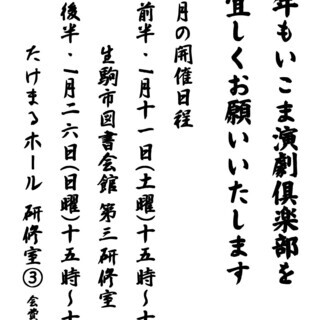 年もいこま演劇倶楽部を
宜しくお願いいたします
月の開催日程
前半・一月十一日(土曜)十五時〜十
生駒市図書会館 第三研修室
後半・一月二六日(日曜)十五時〜十
たけまるホール 研修室③ 会費